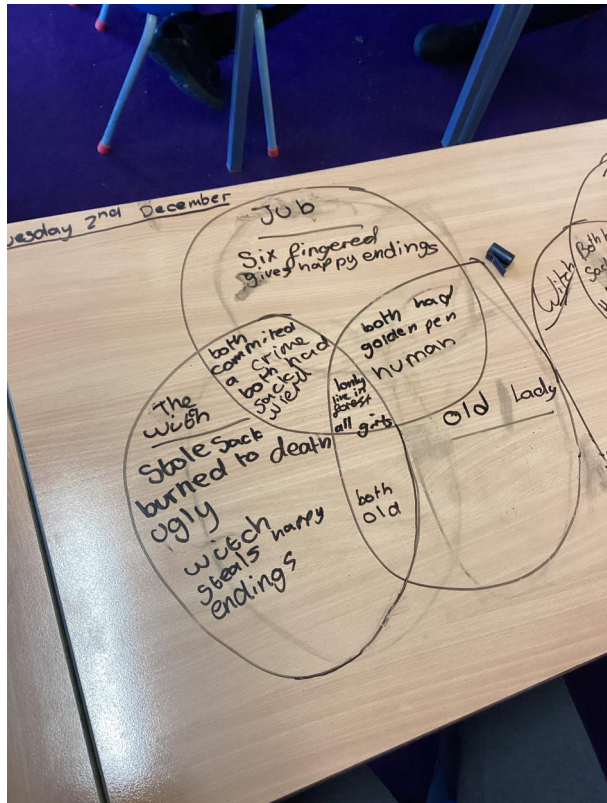 uesday 2nd December
Jub
Six fingered
gives happy endings
both
committed
a crime
both had
sack
wierd
both had
golden pen
human
lonly
live in
forest
all girls
The
witch
Stole sack
burned to death
ugly
witch
steals happy
endings
both
old
old lady
Witch
Both